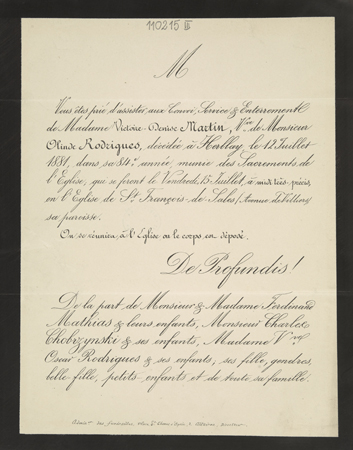 110215 III
M
Vous êtes prié d'assister aux Convoi, Service & Enterrement
de Madame Victoire-Denise Martin, Vve de Monsieur
Olinde Rodrigues, décédée à le 12 Juillet
1881, dans sa 84e année munie des Sacrements de
l'Eglise, qui se feront le Vendredi, 15 Juillet, à midi très-précis,
en l'Eglise de St François-de-Sales (Avenue de Villiers)
sa paroisse.
On se réunira à l'Eglise où le corps en déposé.
De Profundis!
De la part de Monsieur & Madame Ferdinand
Mathias & leurs enfants, Monsieur Charles
Chobrzynski & ses enfants, Madame Vve
Oscar Rodrigues & ses enfants, ses fille, gendres,
belle fille, petits enfants et de toute sa famille.